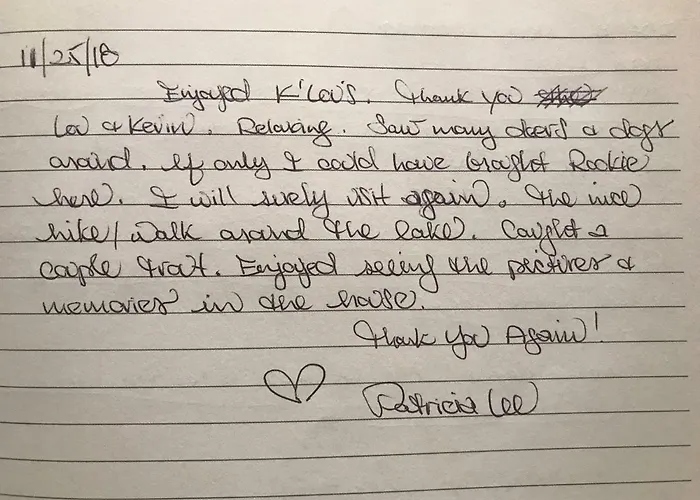 11/25/18
Enjoyed K'Lou's. Thank you
Lou & Kevin. Relaxing. Saw many deers & dogs
around. If only I could have brought Rookie
here. I will surely visit again. The nice
hike/walk around the lake. Caught a
couple trout. Enjoyed seeing the pictures &
memories in the house.
Thank You Again!
Patricia Lee